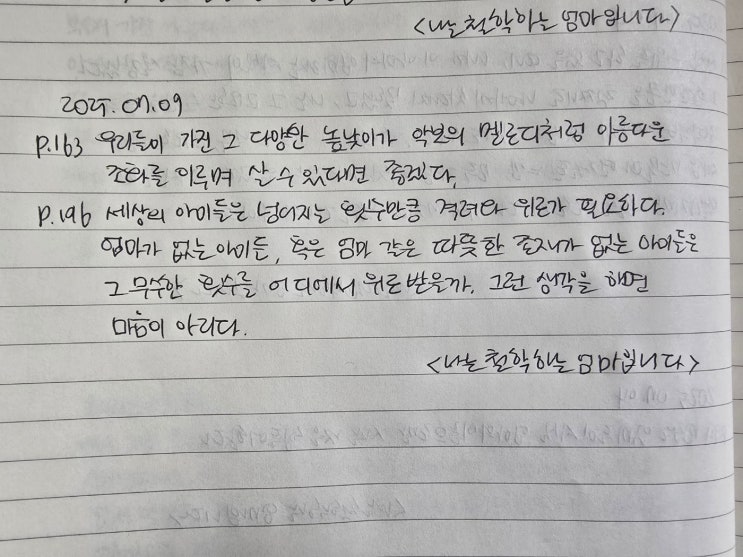 <나는 철학하는 엄마입니다>
2025. 07. 09
p.163 우리들이 가진 그 다양한 높낮이가 악보의 멜로디처럼 아름다운
조화를 이루며 살 수 있다면 좋겠다.
p.196 세상의 아이들은 넘어지는 횟수만큼 격려와 위로가 필요하다.
엄마가 없는 아이들, 혹은 엄마 같은 따뜻한 존재가 없는 아이들은
그 무수한 횟수를 어디에서 위로받을까. 그런 생각을 하면
마음이 아리다.
<나는 철학하는 엄마입니다>